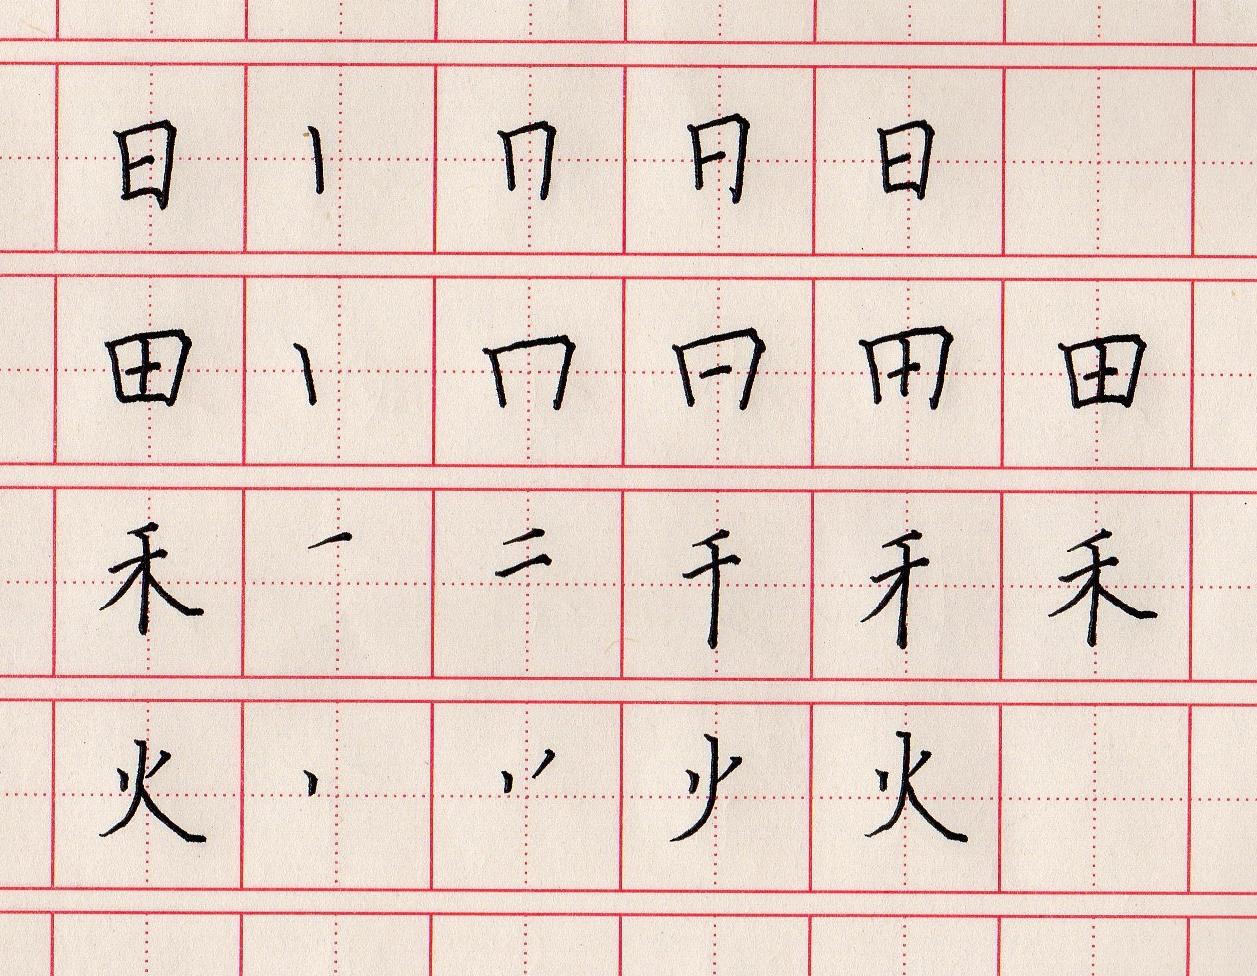 日 丨 冂 月 日
田 丨 冂 日 田 田
禾 一 二 千 禾 禾
火 丶 丷 少 火